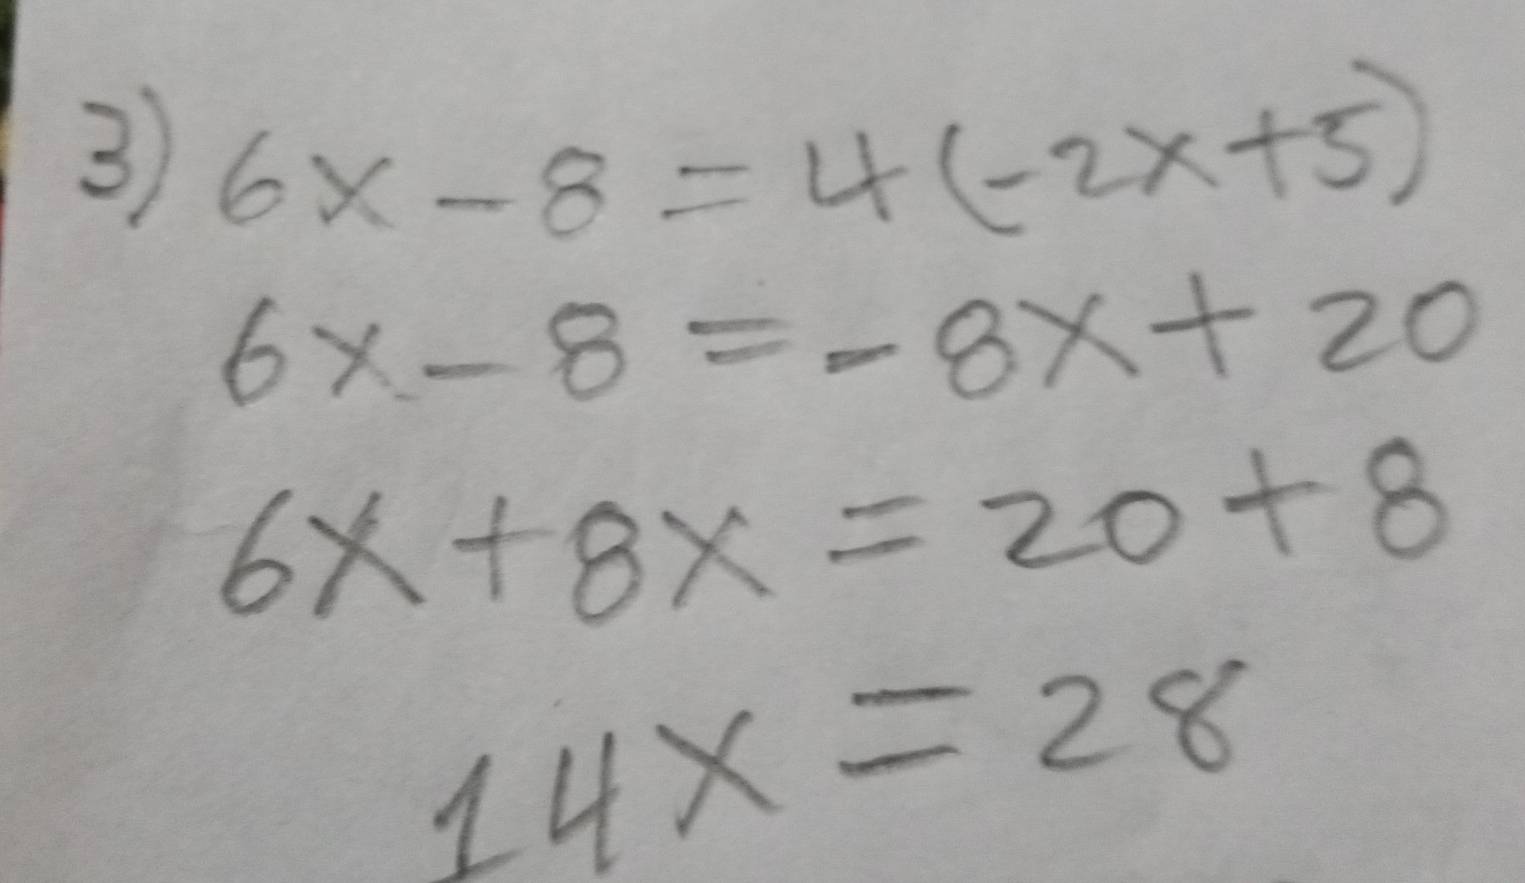 3) 6x - 8 = 4(-2x+5)
6x - 8 = -8x + 20
6x + 8x = 20 + 8
14x = 28